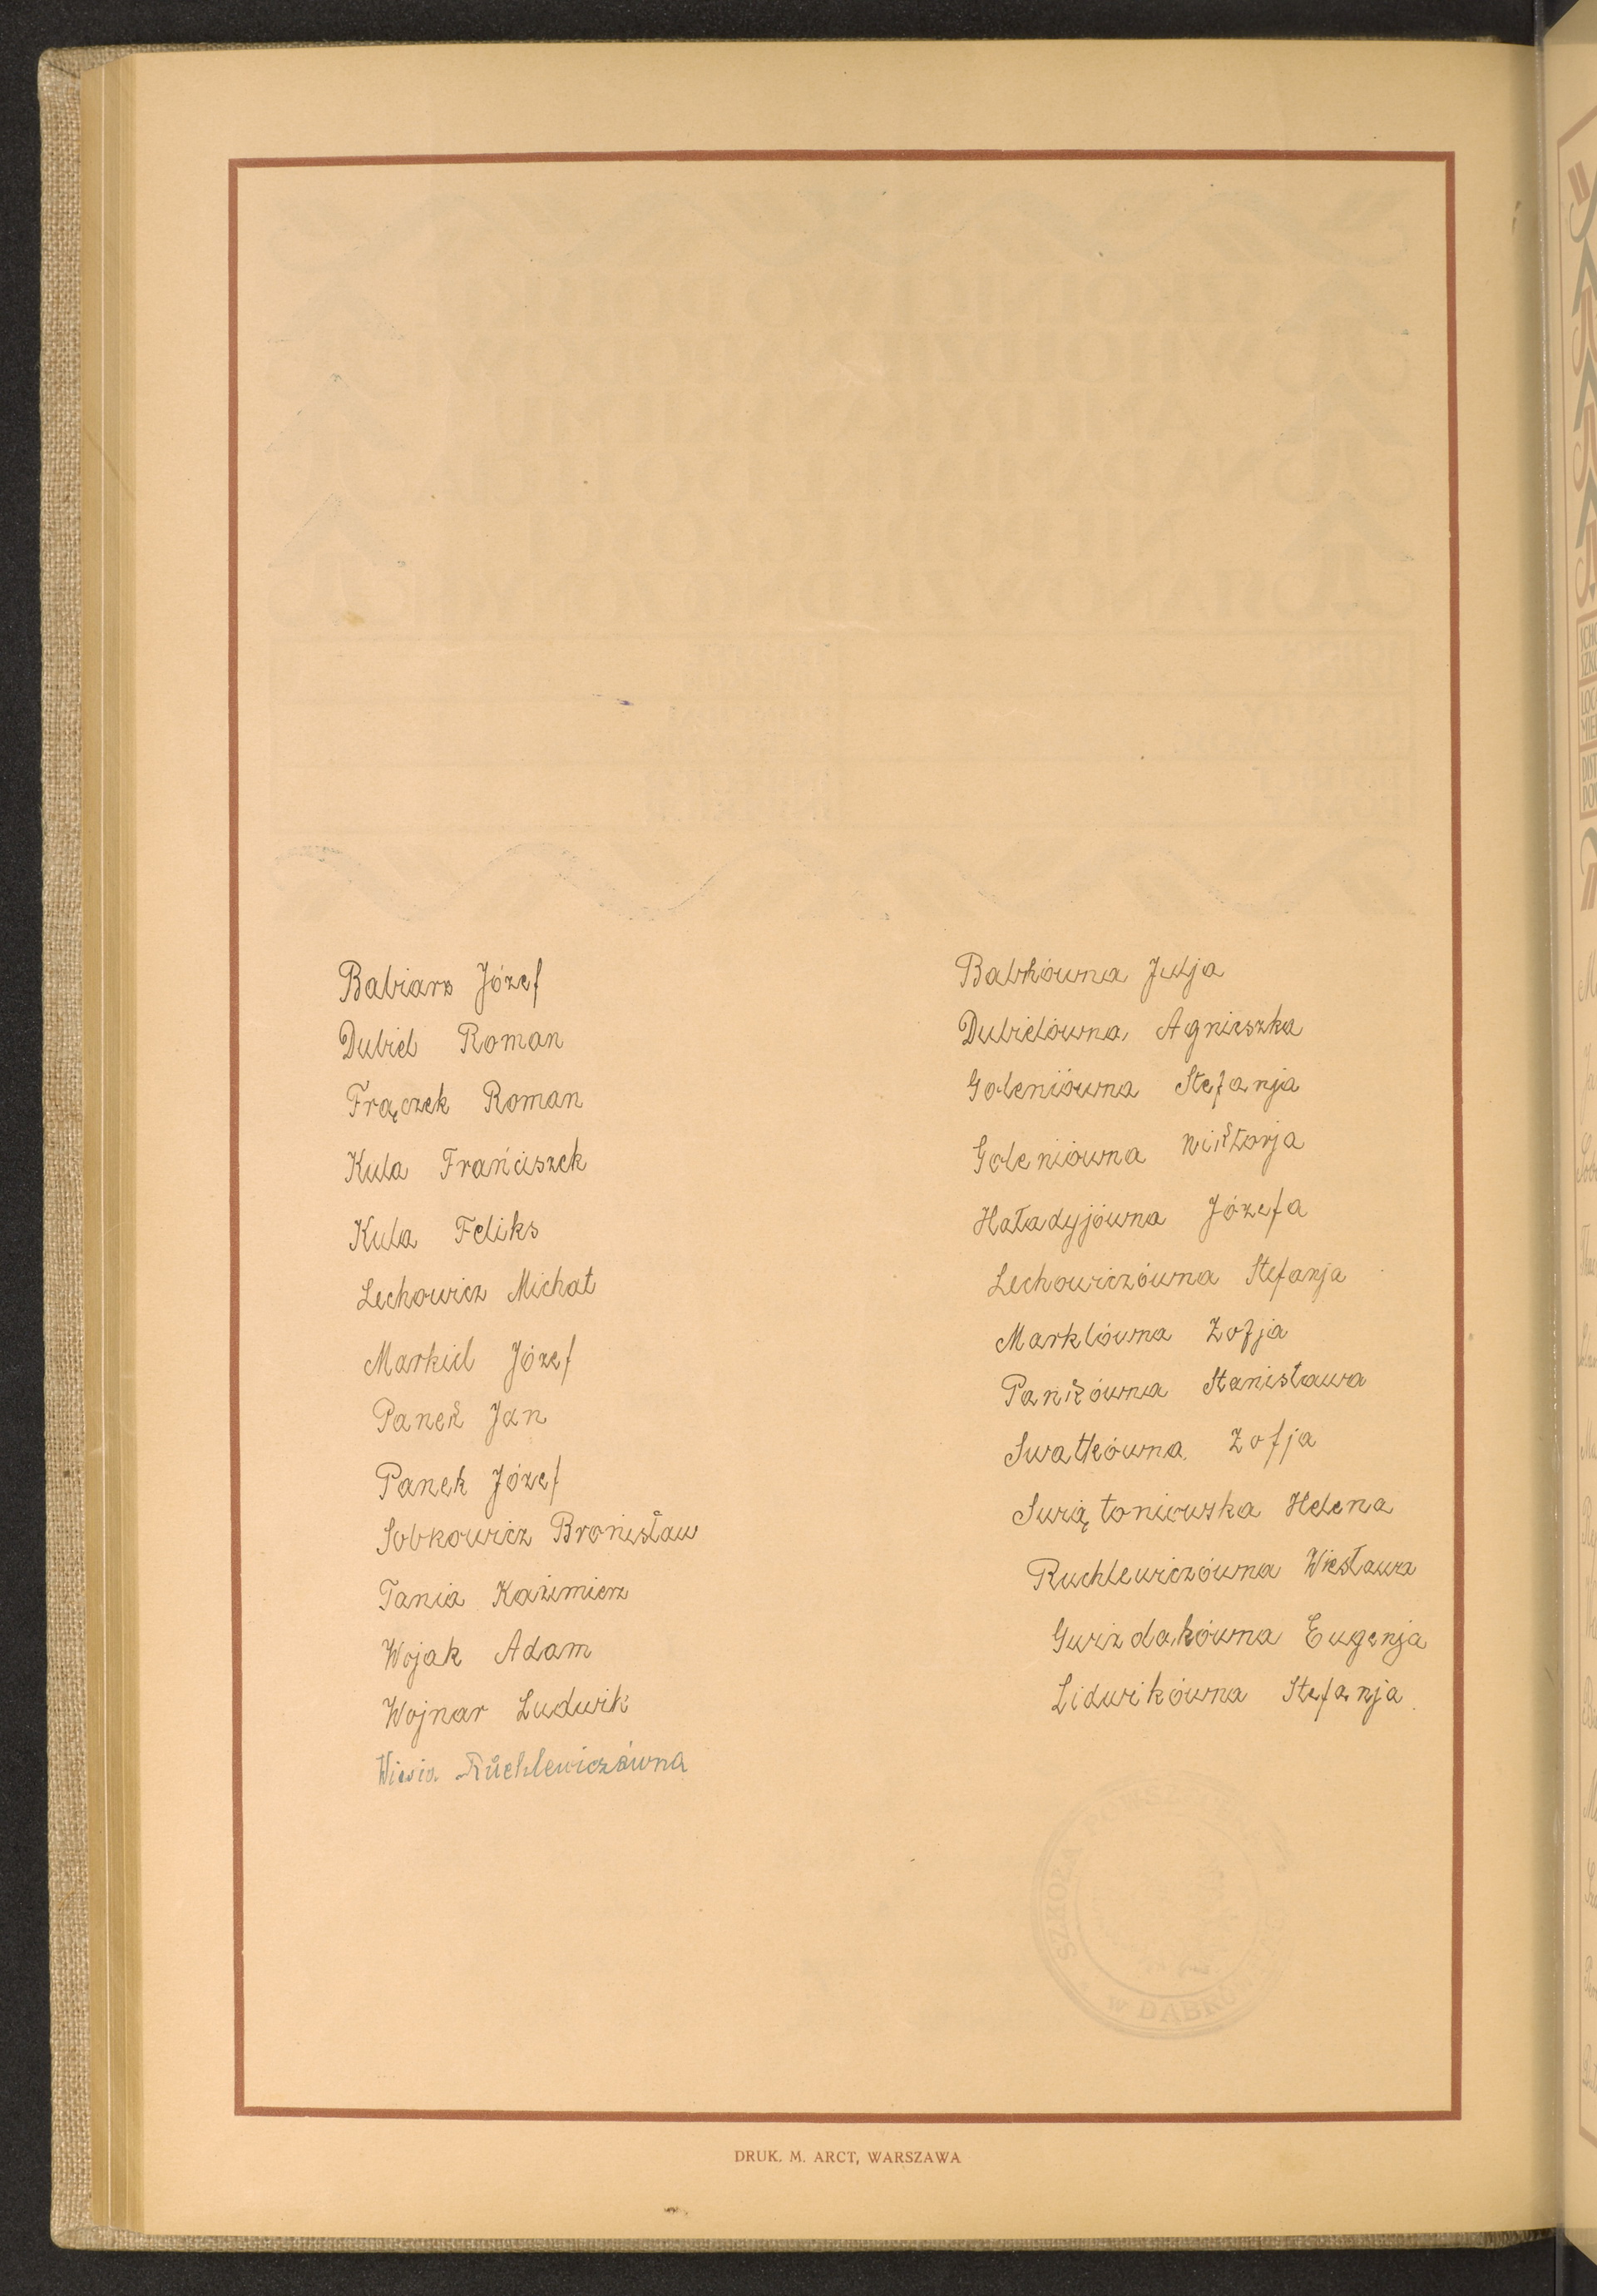 Babiarz Józef
Dubiel Roman
Frączek Roman
Kula Frańciszek
Kula Feliks
Lechowicz Michał
Markiel Józef
Panek Jan
Panek Józef
Sobkowicz Bronisław
Tania Kazimierz
Wojak Adam
Wojnar Ludwik
Wiesia Ruchlewiczówna
Babkówna Julja
Dubielówna Agnieszka
Goleniówna Stefanja
Goleniówna Wiktorja
Haładyjówna Józefa
Lechowiczówna Stefanja
Marklówna Zofja
Pankówna Stanisława
Swatkówna Zofja
Świątoniowska Helena
Ruchlewiczówna Wiesława
Gwizdakówna Eugenja
Lidwikówna Stefanja
SZKOŁA POWSZECHNA
w DĄBRÓWKACH
DRUK. M. ARCT, WARSZAWA